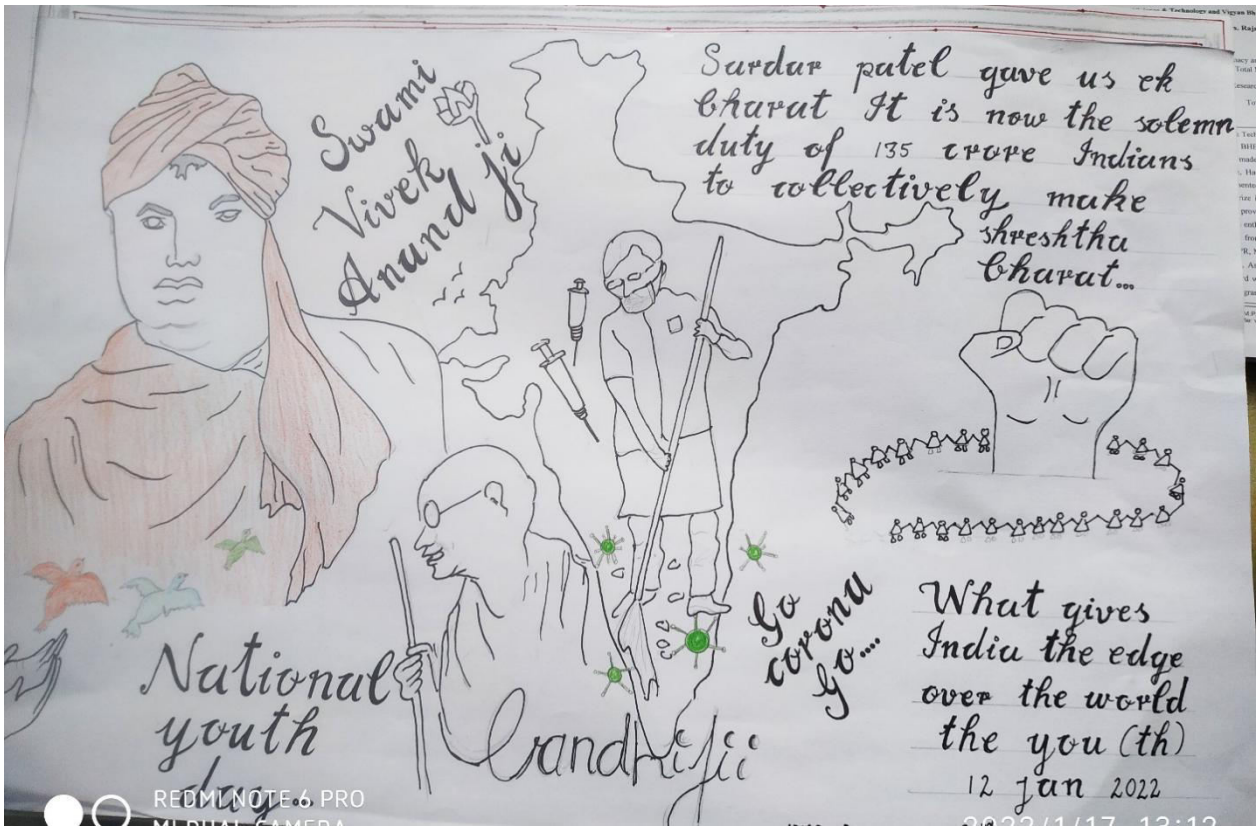 Swami
Vivek
Anand ji
Sardar patel gave us ek
bharat It is now the solemn
duty of 135 crore Indians
to collectively make
shreshtha
bharat...
Go
corona
Go....
What gives
India the edge
over the world
the you (th)
12 Jan 2022
National
youth
day...
Gandhijii
REDMI NOTE 6 PRO
MI DUAL CAMERA
2022/1/17 13:12
& Technology and Vigyan